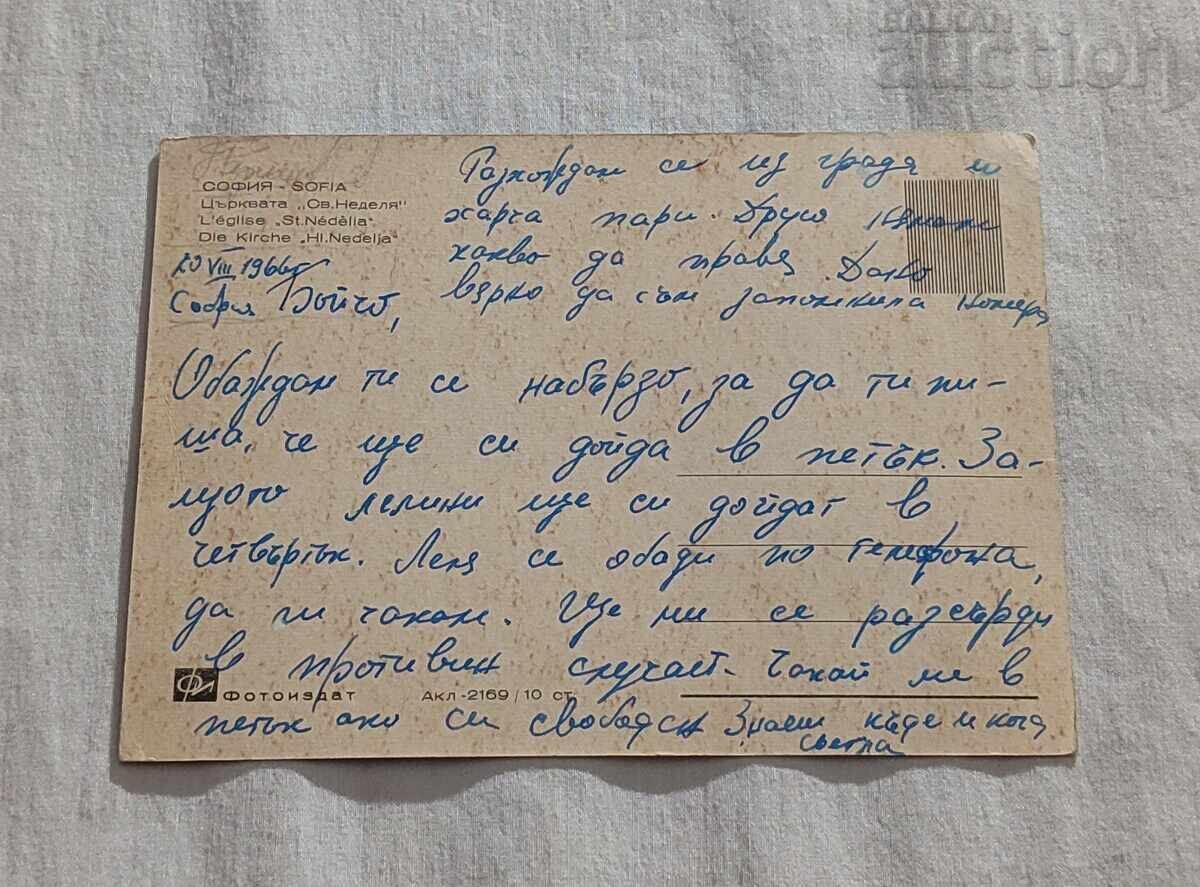 auction
СОФИЯ - SOFIA
Църквата „Св.Неделя"
L'église „St.Nédèlia"
Die Kirche „Hl.Nedelja"
20 VIII 1966г
София Бойчо,
Обаждам ти се набързо, за да ти пи-
ша, че ще си дойда в петък. За-
щото лелини ще си дойдат в
четвъртък. Леля се обади по телефона,
да ги чакам. Ще ми се разсърди
в противен случай. Чакай ме в
петък ако си свободен Знаеш къде и кога
Светла
Разхождам се из града и
харча пари. Друго нямам
какво да правя. Дано
вярно да съм запомнила номера
ФОТОИЗДАТ
Акл-2169/10 ст.